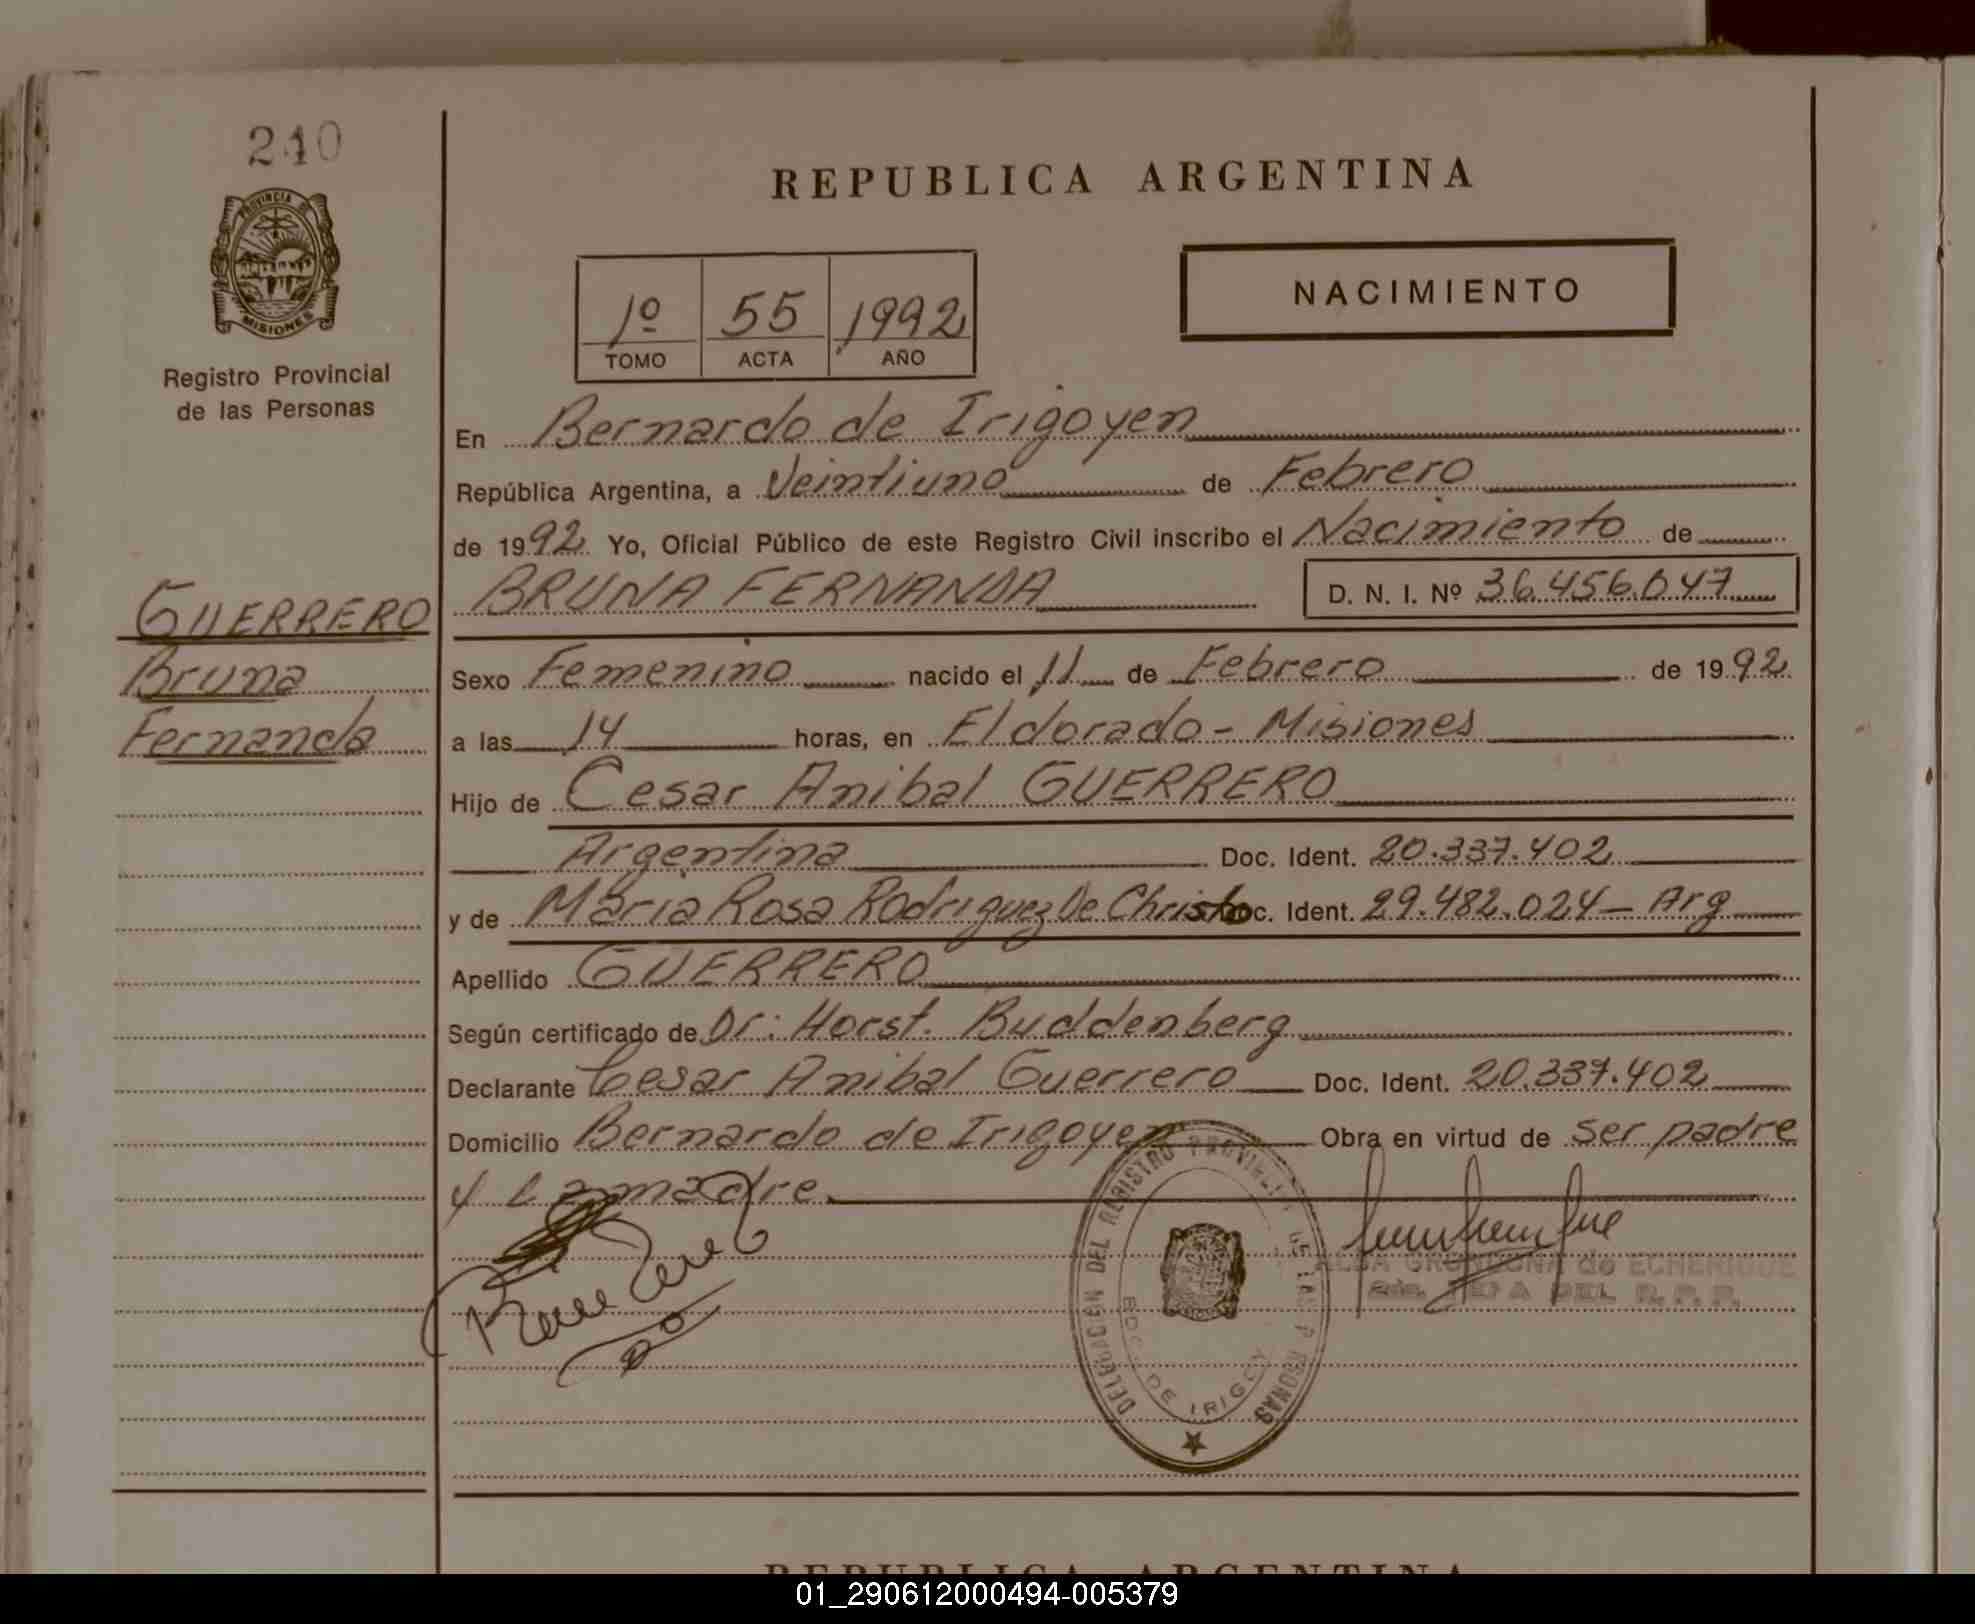 240
PROVINCIA DE
MISIONES
Registro Provincial
de las Personas
GUERRERO
Bruna
Fernanda
REPUBLICA ARGENTINA
1º 55 1992
TOMO ACTA AÑO
NACIMIENTO
En Bernardo de Irigoyen
República Argentina, a Veintiuno de Febrero
de 1992 Yo, Oficial Público de este Registro Civil inscribo el Nacimiento de
BRUNA FERNANDA D. N. I. Nº 36.456.047
Sexo Femenino nacido el 11 de Febrero de 1992
a las 14 horas, en Eldorado - Misiones
Hijo de Cesar Anibal GUERRERO
Argentina Doc. Ident. 20.337.402
y de Maria Rosa Rodriguez De Christo Doc. Ident. 29.482.024 - Arg
Apellido GUERRERO
Según certificado de Dr: Horst. Buddenberg
Declarante Cesar Anibal Guerrero Doc. Ident. 20.337.402
Domicilio Bernardo de Irigoyen Obra en virtud de ser padre
y La madre.
DELEGACION DEL REGISTRO PROVINCIAL DE LAS PERSONAS
BDO. DE IRIGOY
ALBA de ECHERIQUE
JEFA DEL R. P. P.
REPUBLICA ARGENTINA
01_290612000494-005379